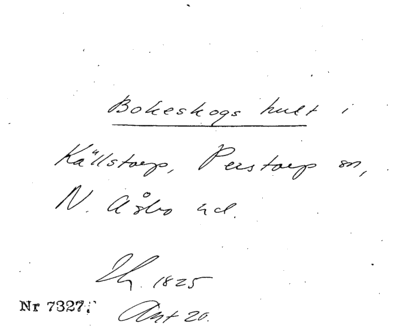 Bokeskogs hult i
Källstorp, Perstorp sn,
N. Åsbo hd.
1825
Nr 7327.
Ant 20.